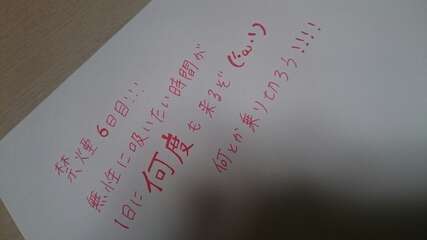 禁煙6日目!!!
無性に吸いたい時間が
1日に何度も来るぞ(´・ω・`)
何とか乗り切ろう!!!!